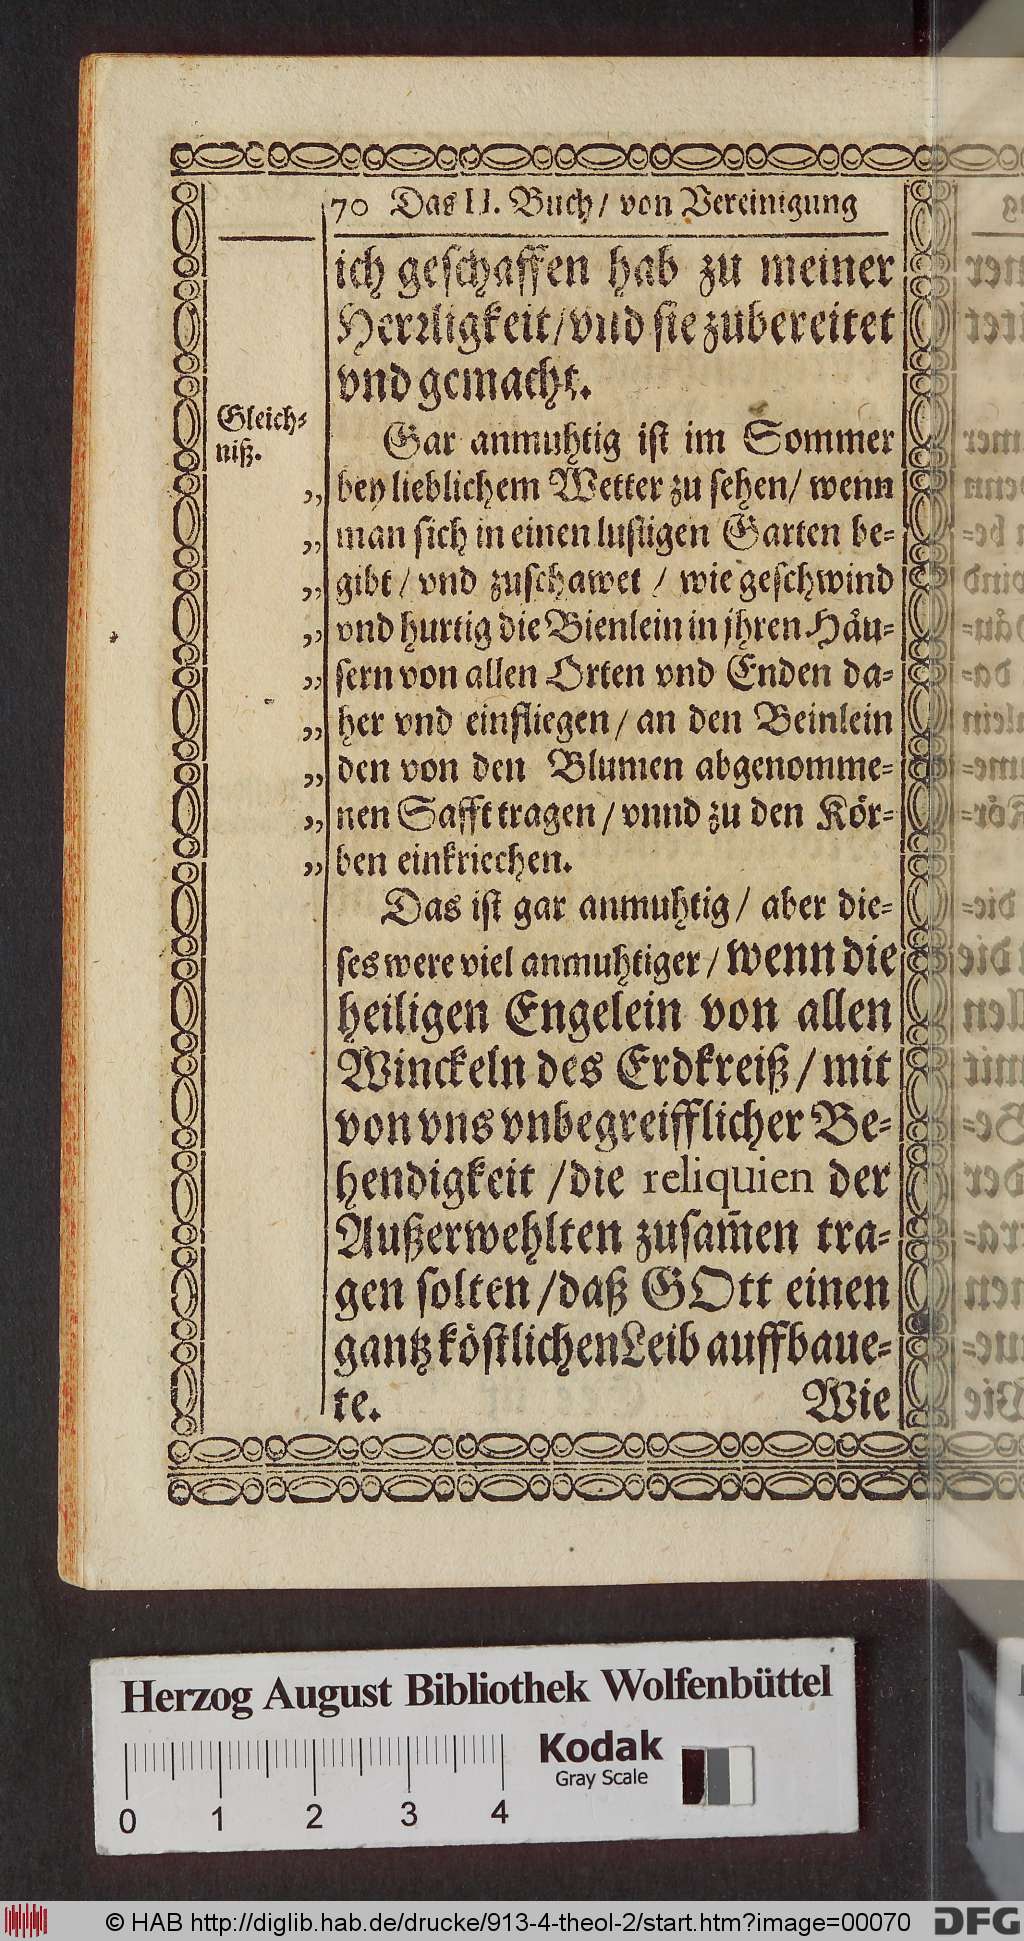 70 Das II. Buch / von Vereinigung
ich geschaffen hab zu meiner
Herrligkeit / vnd sie zubereitet
vnd gemacht.
Gleich-
niß.
Gar anmuhtig ist im Sommer
„ bey lieblichem Wetter zu sehen / wenn
„ man sich in einen lustigen Garten be-
„ gibt / vnd zuschawet / wie geschwind
„ vnd hurtig die Bienlein in jhren Häu-
„ sern von allen Orten vnd Enden da-
„ her vnd einfliegen / an den Beinlein
„ den von den Blumen abgenomme-
„ nen Safft tragen / vnnd zu den Kör-
„ ben einkriechen.
Das ist gar anmuhtig / aber die-
ses were viel anmuhtiger / wenn die
heiligen Engelein von allen
Winckeln des Erdkreiß / mit
von vns vnbegreifflicher Be-
hendigkeit / die reliquien der
Außerwehlten zusam̃en tra-
gen solten / daß GOtt einen
gantz köstlichen Leib auffbaue-
te. Wie
Herzog August Bibliothek Wolfenbüttel
Kodak
Gray Scale
0 1 2 3 4
© HAB http://diglib.hab.de/drucke/913-4-theol-2/start.htm?image=00070
DFG